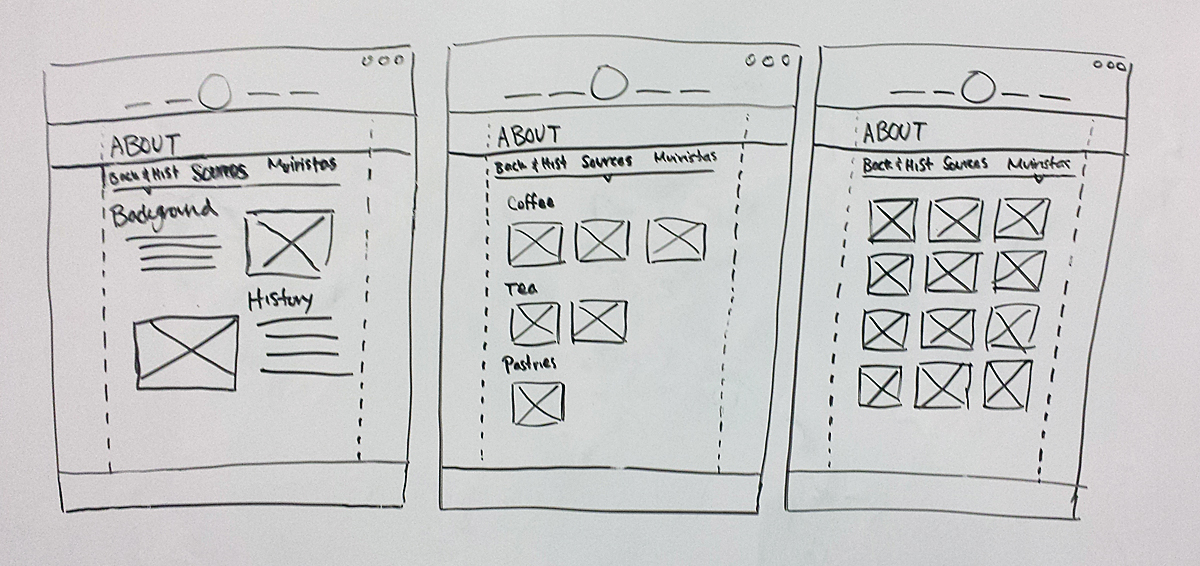 ABOUT
Back & Hist Sources Muiristas
Background
History
ABOUT
Back & Hist Sources Muiristas
Coffee
Tea
Pastries
ABOUT
Back & Hist Sources Muiristas